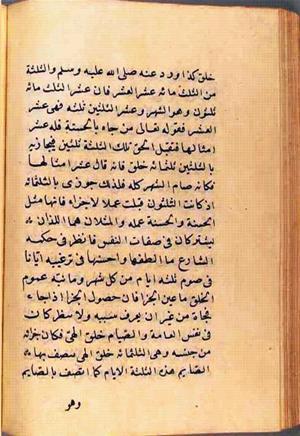 خلق كذا ورد عنه صلى الله عليه وسلم والثلثة
من الثلث مائة عشر العشر فان عشر الثلث مائة
ثلثون وهو الشهر وعشر الثلثين ثلثه فهى عشر
العشر فقوله تعالى من جاء بالحسنة فله عشر
امثالها فتقبل الحق تلك الثلثة الثلثين فيجازيه
بالثلثين ثلثمائة خلق فانه قال عشر امثالها
فكانه صام الشهر كله فلذلك جوزى بالثلثمائة
اذ كانت الثلثون قبلت عملا لا جزاء فانها مثل
الحسنة والحسنة عمله والمثلان هما اللذان
يشتركان فى صفات النفس فانظر فى حكمة
الشارع ما الطفها واحسنها فى ترغيبه ايانا
فى صوم ثلثة ايام من كل شهر وما نبه عموم
الخلق ما عين الجزا فان حصول الجزا اذا جاء
فجاة من غير ان يعرف سببه ولا ينتظر كان
فى نفس العامة والصيام خلق الهى فكان جزائه
من جنسه وهى الثلثمائة خلق الهى يتصف بها
الصايم هذه الثلثة الايام كما اتصف بالصايم
وهو